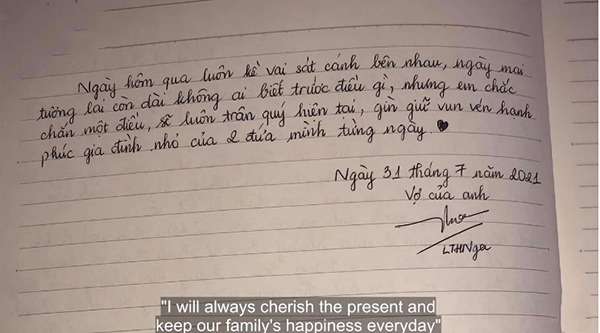 Ngày hôm qua luôn kề vai sát cánh bên nhau, ngày mai
tương lai còn dài không ai biết trước điều gì, nhưng em chắc
chắn một điều, sẽ luôn trân quý hiện tại, gìn giữ vun vén hạnh
phúc gia đình nhỏ của 2 đứa mình từng ngày. ♥
Ngày 31 tháng 7 năm 2021
Vợ của anh
LTHNga
"I will always cherish the present and
keep our family's happiness everyday"